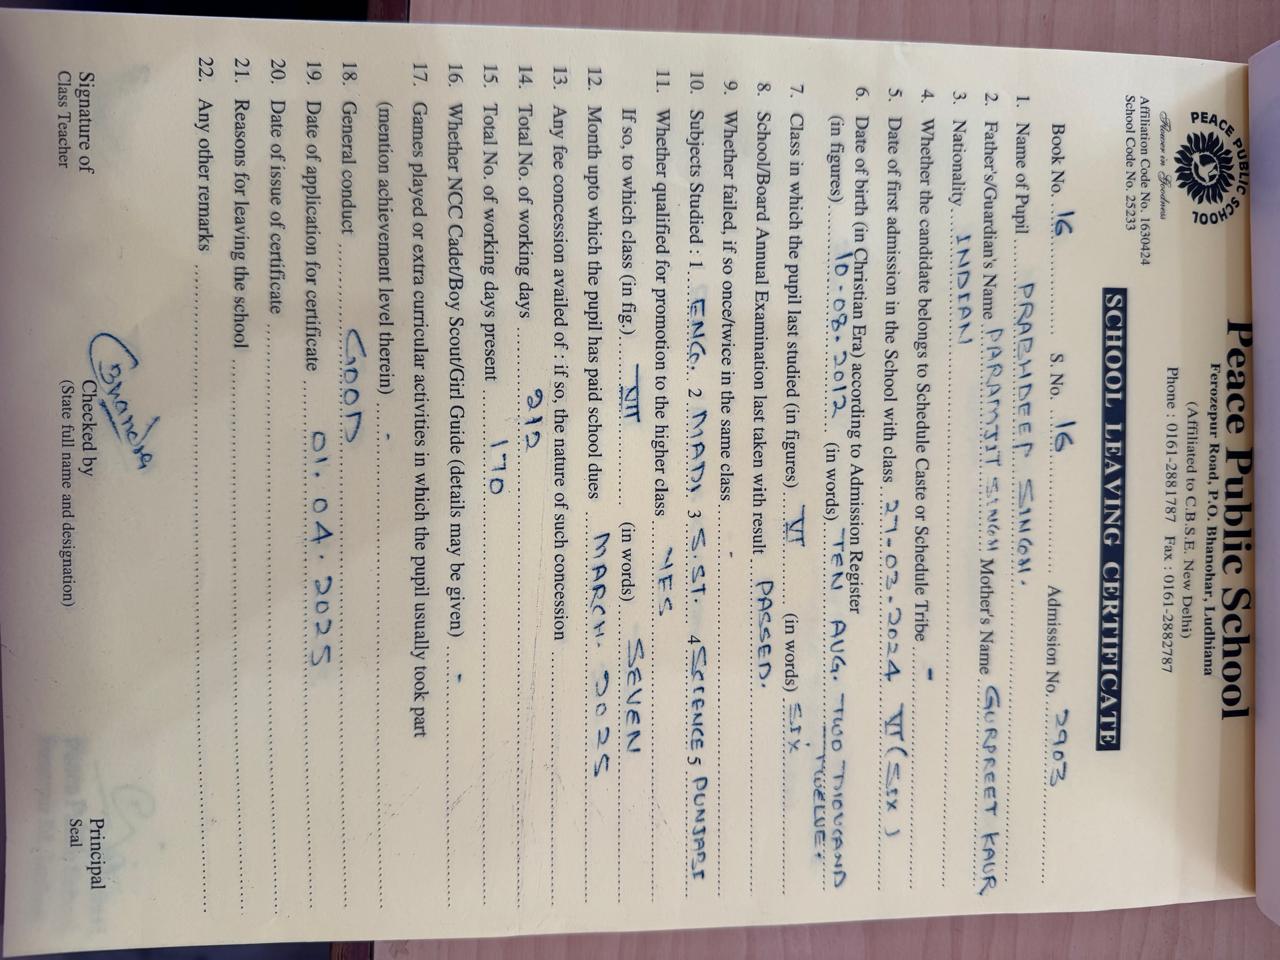 PEACE PUBLIC SCHOOL
Power in Goodness
Affiliation Code No. 1630424
School Code No. 25233
Peace Public School
Ferozepur Road, P.O. Bhanohar, Ludhiana
(Affiliated to C.B.S.E. New Delhi)
Phone : 0161-2881787 Fax : 0161-2882787
SCHOOL LEAVING CERTIFICATE
Book No. 16 S. No. 16 Admission No. 2903
1. Name of Pupil PRABHDEEP SINGH.
2. Father's/Guardian's Name PARAMJIT SINGH Mother's Name GURPREET KAUR
3. Nationality INDIAN
4. Whether the candidate belongs to Schedule Caste or Schedule Tribe -
5. Date of first admission in the School with class 27-03-2024 VI (SIX)
6. Date of birth (in Christian Era) according to Admission Register
(in figures) 10-08-2012 (in words) TEN AUG. TWO THOUSAND
TWELVE.
7. Class in which the pupil last studied (in figures) VI (in words) SIX
8. School/Board Annual Examination last taken with result PASSED.
9. Whether failed, if so once/twice in the same class -
10. Subjects Studied : 1 ENG. 2 MATH 3 S.ST. 4 SCIENCE 5 PUNJABI
11. Whether qualified for promotion to the higher class YES
If so, to which class (in fig.) VII (in words) SEVEN
12. Month upto which the pupil has paid school dues MARCH. 2025
13. Any fee concession availed of : if so, the nature of such concession
14. Total No. of working days 212
15. Total No. of working days present 170
16. Whether NCC Cadet/Boy Scout/Girl Guide (details may be given) -
17. Games played or extra curricular activities in which the pupil usually took part
(mention achievement level therein) -
18. General conduct GOOD
19. Date of application for certificate 01.04.2025
20. Date of issue of certificate
21. Reasons for leaving the school
22. Any other remarks
Signature of
Class Teacher
Checked by
(State full name and designation)
Principal
Seal